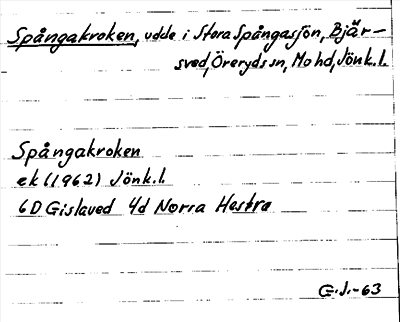 Spångakroken, udde i Stora Spångasjön, Bjär-
sved, Öreryds sn, Mo hd, Jönk.l.
Spångakroken
ek (1962) Jönk.l.
6D Gislaved 4d Norra Hestra
G.J.-63